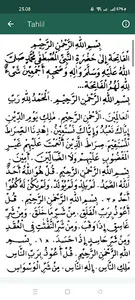 25.08
Tahlil
بِسْمِ اللهِ الرَّحْمٰنِ الرَّحِيْمِ
اَلْفَاتِحَةَ اِلَى حَضْرَةِ النَّبِيِّ الْمُصْطَفَى مُحَمَّدٍ صَلَّى
اللهُ عَلَيْهِ وَسَلَّمَ وَاٰلِهِ وَصَحْبِهِ اَجْمَعِيْنَ شَيْءٌ
لِلّٰهِ لَهُمُ الْفَاتِحَةُ...
بِسْمِ اللهِ الرَّحْمٰنِ الرَّحِيْمِ. اَلْحَمْدُ لِلّٰهِ رَبِّ
الْعَالَمِيْنَ. الرَّحْمٰنِ الرَّحِيْمِ. مٰلِكِ يَوْمِ الدِّيْنِ.
اِيَّاكَ نَعْبُدُ وَاِيَّاكَ نَسْتَعِيْنُ. اِهْدِنَا الصِّرَاطَ
الْمُسْتَقِيْمَ. صِرَاطَ الَّذِيْنَ اَنْعَمْتَ عَلَيْهِمْ غَيْرِ
الْمَغْضُوْبِ عَلَيْهِمْ وَلَا الضَّالِّيْنَ. اٰمِيْنَ
بِسْمِ اللهِ الرَّحْمٰنِ الرَّحِيْمِ. قُلْ هُوَ اللهُ اَحَدٌ. اَللهُ
الصَّمَدُ. لَمْ يَلِدْ. وَلَمْ يُوْلَدْ. وَلَمْ يَكُنْ لَهُ كُفُوًا
اَحَدٌ ×٣. بِسْمِ اللهِ الرَّحْمٰنِ الرَّحِيْمِ. قُلْ
اَعُوْذُ بِرَبِّ الْفَلَقِ. مِنْ شَرِّ مَا خَلَقَ. وَمِنْ شَرِّ
غَاسِقٍ اِذَا وَقَبَ. وَمِنْ شَرِّ النَّفّٰثٰتِ فِى الْعُقَدِ
وَمِنْ شَرِّ حَاسِدٍ اِذَا حَسَدَ ×١. بِسْمِ
اللهِ الرَّحْمٰنِ الرَّحِيْمِ. قُلْ اَعُوْذُ بِرَبِّ النَّاسِ
مَلِكِ النَّاسِ. اِلٰهِ النَّاسِ. مِنْ شَرِّ الْوَسْوَاسِ